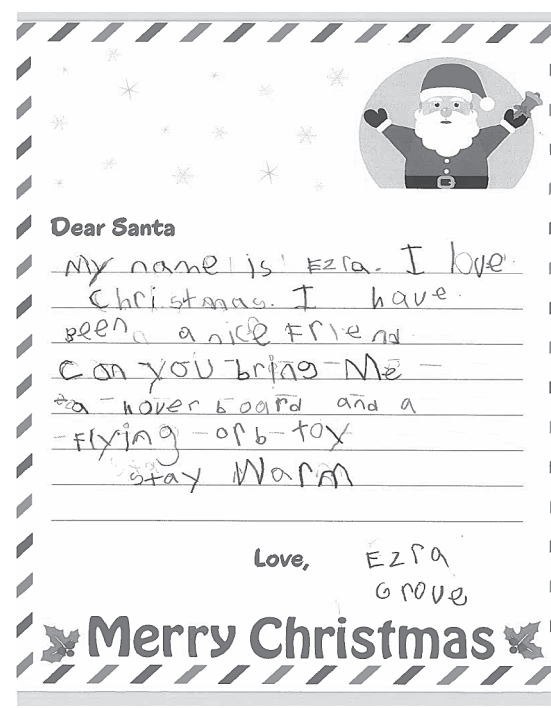 Dear Santa
My name is Ezra. I love
Christmas. I have
Been a nice Friend
Can you bring Me
a hover board and a
Flying orb toy
stay Warm
Love, Ezra
Grove
Merry Christmas